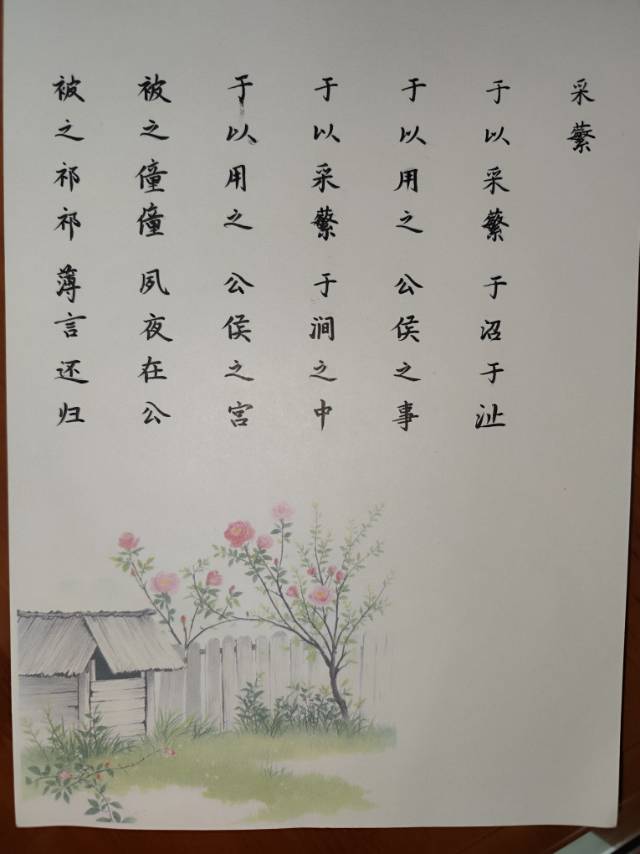 采蘩
于以采蘩 于沼于沚
于以用之 公侯之事
于以采蘩 于涧之中
于以用之 公侯之宫
被之僮僮 夙夜在公
被之祁祁 薄言还归